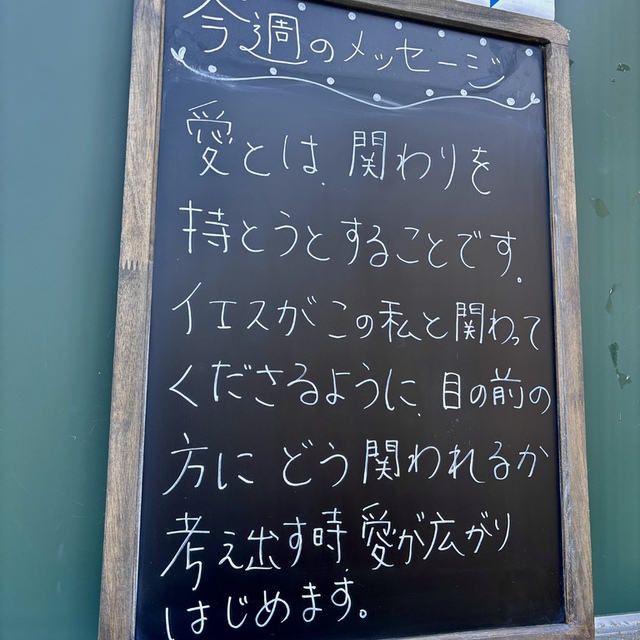 今週のメッセージ
愛とは、関わりを
持とうとすることです。
イエスがこの私と関わって
くださるように、目の前の
方に どう関われるか
考え出す時、愛が広がり
はじめます。